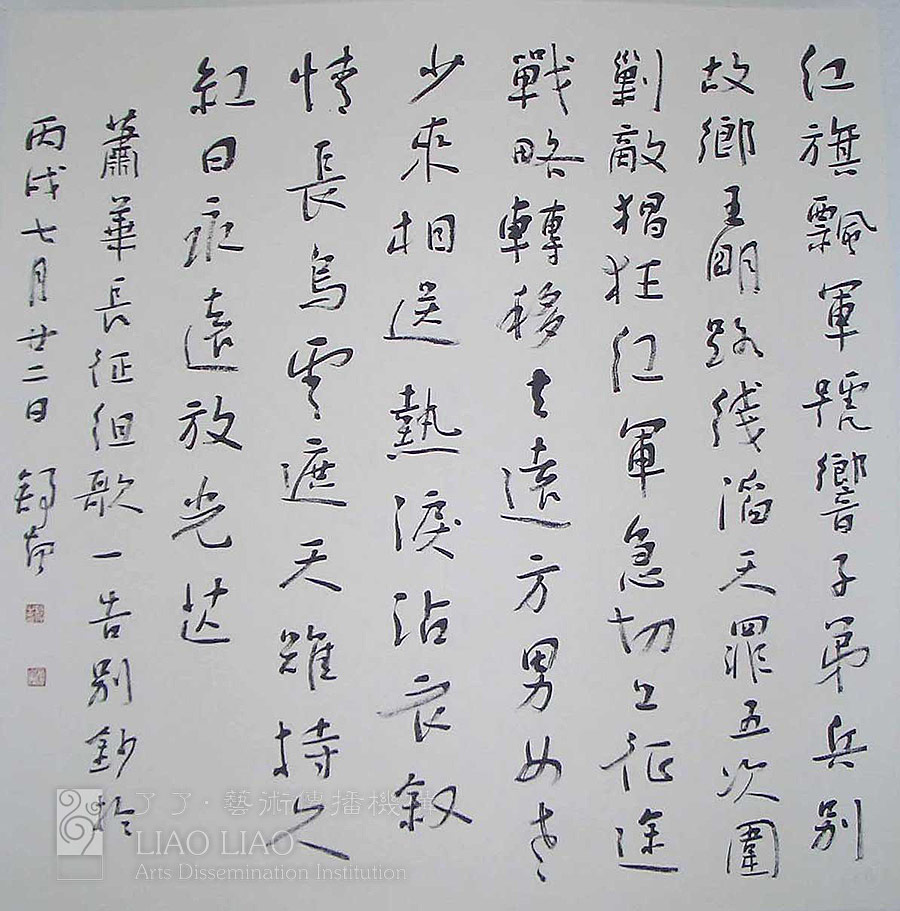 红旗飄軍號響子弟兵别
故鄉王明路线滔天罪五次圍
剿敵猖狂红軍急切上征途
戰略轉移去遠方男女老
少來相送熱淚沾衣叙
情長烏雲遮天難持久
紅日永遠放光芒
蕭華長征组歌一告别鈔於
丙戌七月廿二日
了了·藝術傳播機構
LIAO LIAO
Arts Dissemination Institution